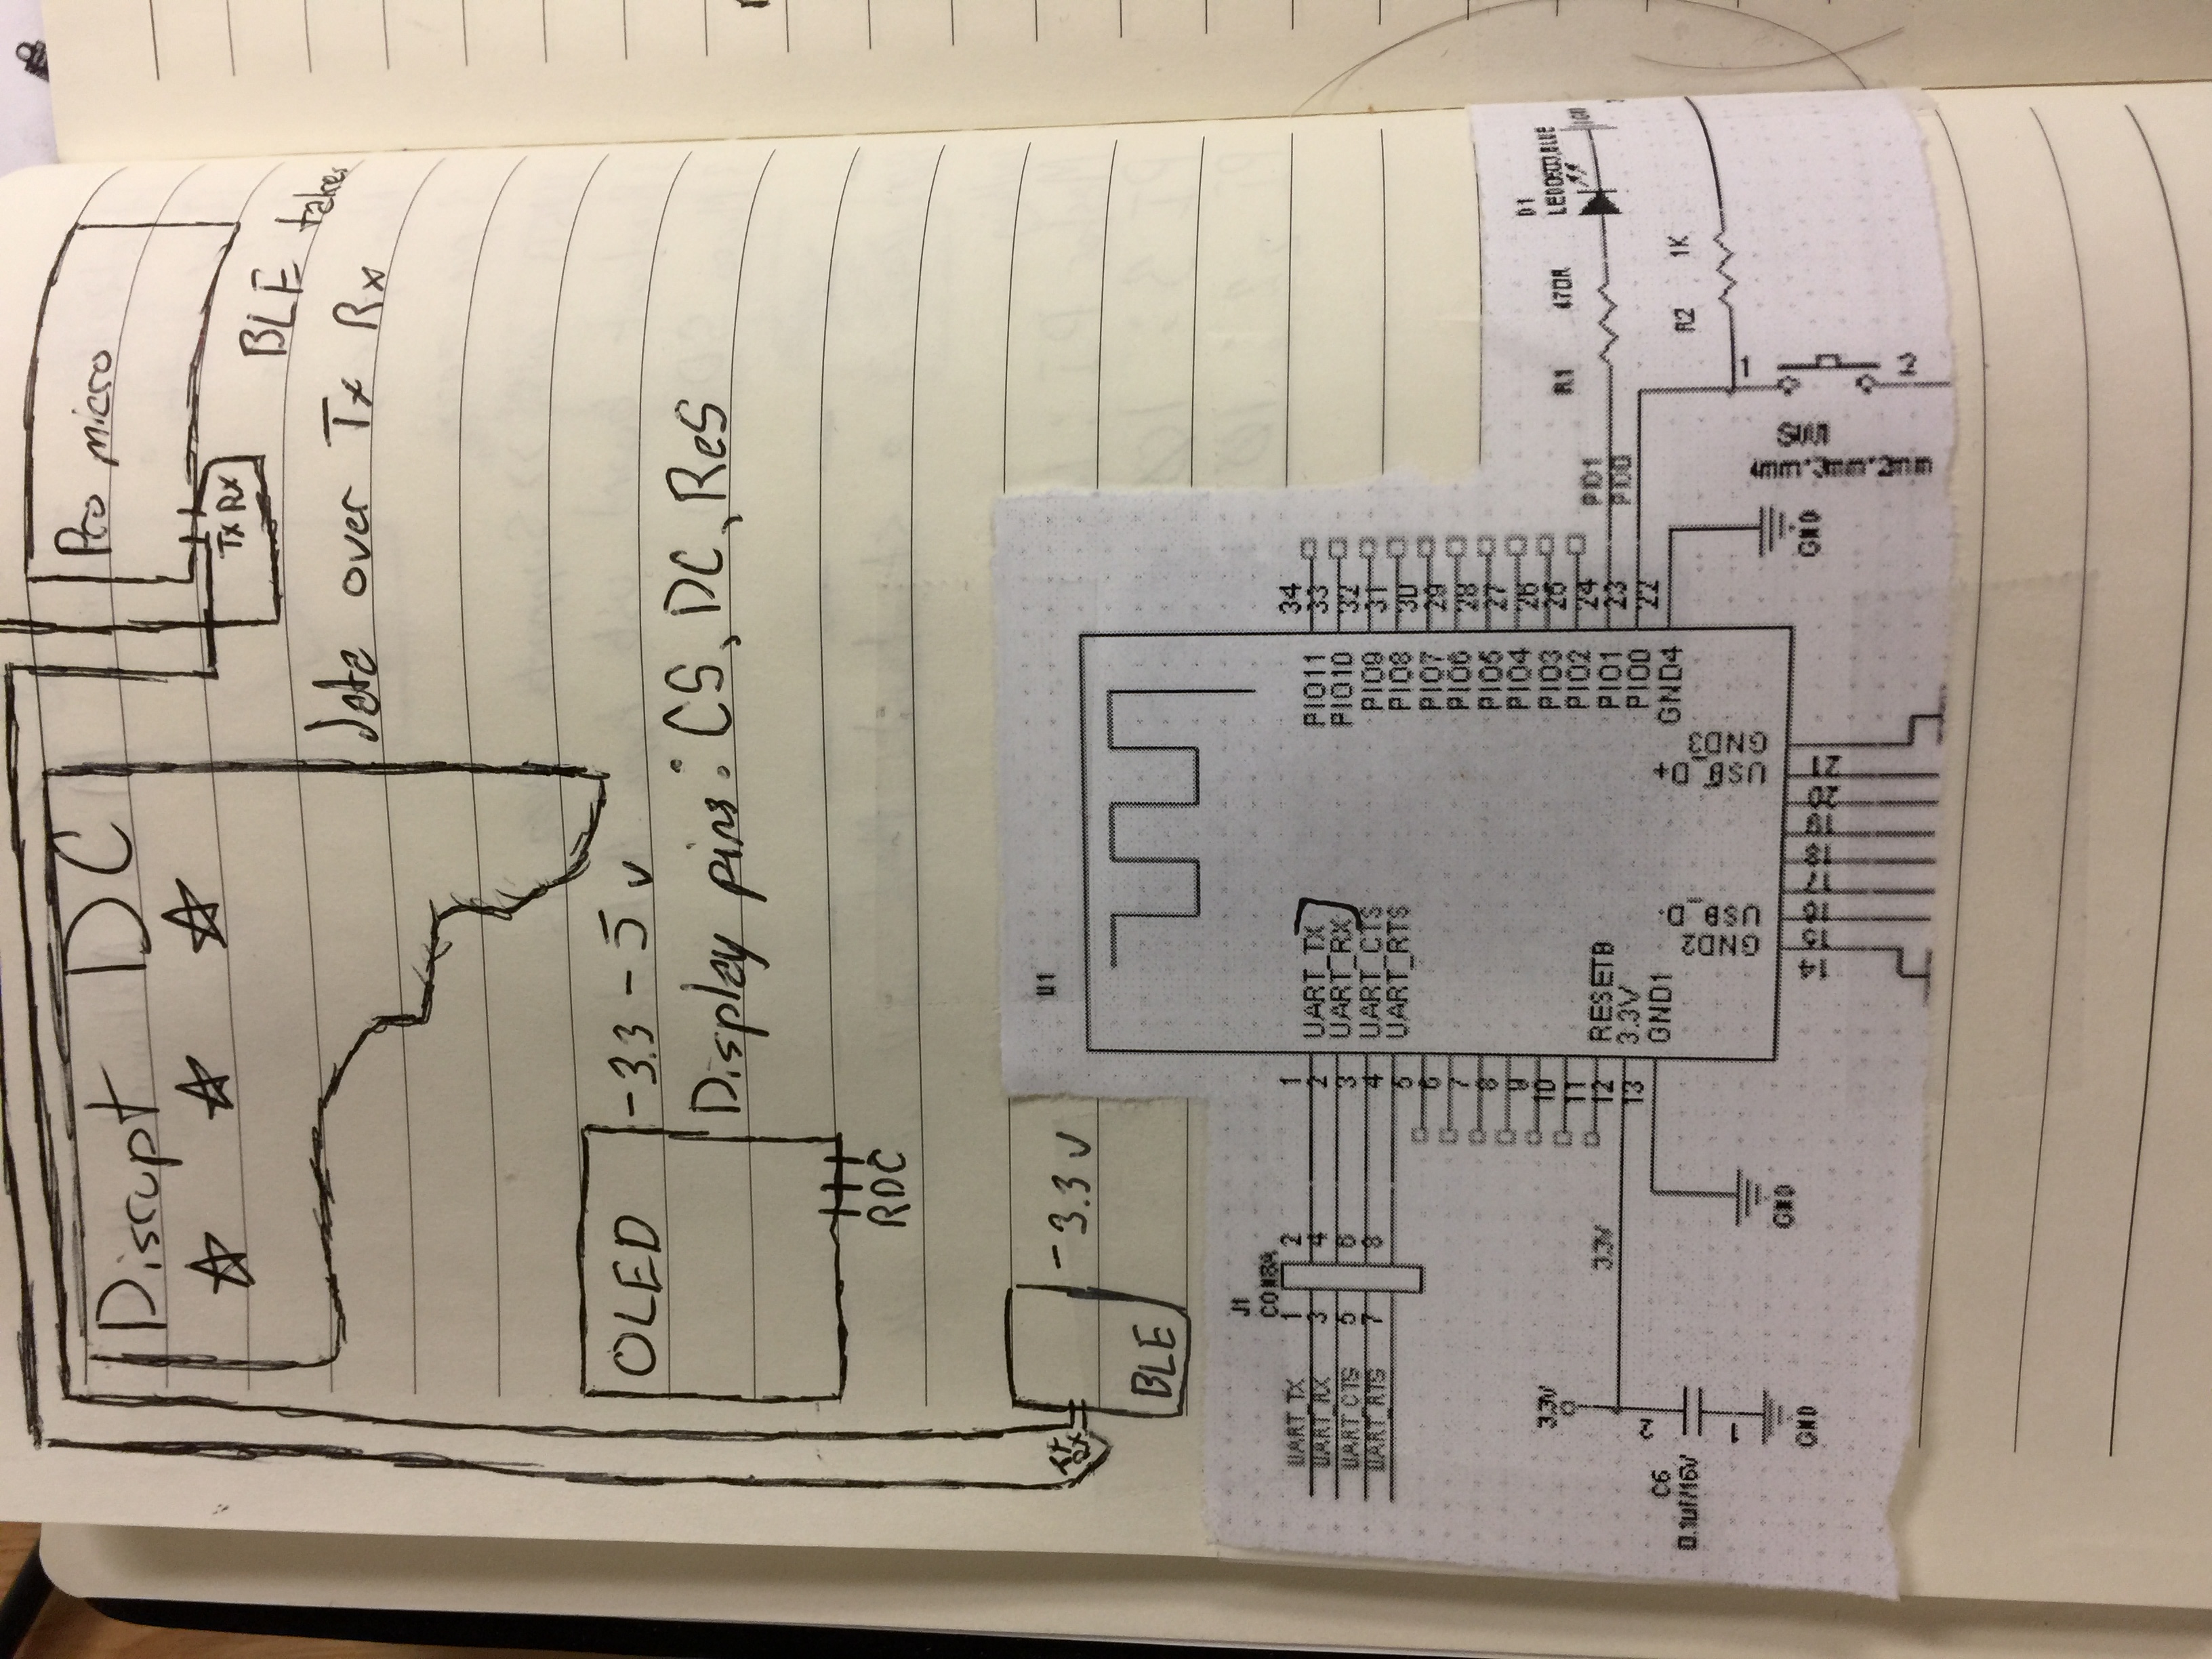 Disrupt DC
Pro micro
Tx Rx
BLE takes
data over Tx Rx
OLED
-3.3-5v
Display pins: CS, DC, Res
RDC
-3.3v
Tx
Rx
BLE
U1
UART_TX
UART_RX
UART_CTS
UART_RTS
RESETB
3.3V
GND1
1
2
3
4
5
6
7
8
9
10
11
12
13
PIO11
PIO10
PIO9
PIO8
PIO7
PIO6
PIO5
PIO4
PIO3
PIO2
PIO1
PIO0
GND4
34
33
32
31
30
29
28
27
26
25
24
23
22
GND2
USB_D-
USB_D+
GND3
14
15
16
17
18
19
20
21
J1
CON8A
1 2
3 4
5 6
7 8
UART TX
UART RX
UART CTS
UART RTS
3.3V
3.3V
C6
0.1uf/16v
2
1
GND
GND
GND
PIO1
PIO0
R1 470R
D1
LED0603,BLUE
R2 1K
1
2
SW1
4mm*3mm*2mm